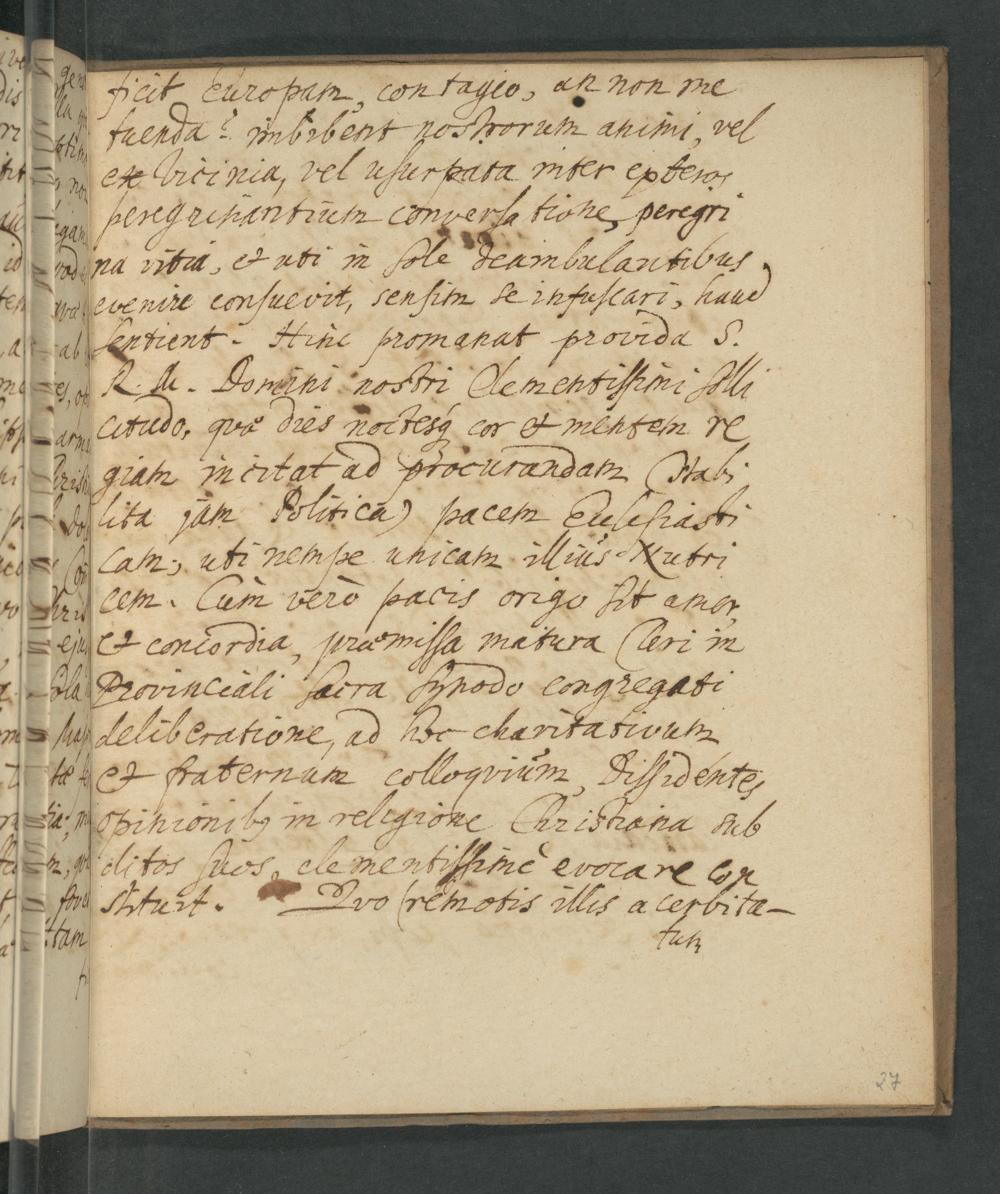 ficit Europam, contagio, an non me
tuenda? imbibent nostrorum animi, vel
ex vicinia, vel usurpata inter exteros
peregrinantium conversatione, peregri
na vitia, & uti in sole deambulantibus
evenire consuevit, sensim se infuscari, haud
sentient. Hinc promanat provida S.
R. M. Domini nostri Clementissimi solli
citudo, quæ dies noctesq cor & mentem re
giam incitat ad procurandam (stabi
lita jam Politica) pacem Ecclesiasti
cam; uti nempe unicam illius Nutri
cem. Cùm verò pacis origo sit amor,
& concordia, præmissa matura Cleri in
Provinciali sacra synodo congregati
deliberatione, ad hoc charitativum
& fraternum colloqvium, Dissidentes
opinionibq in religione Christiana sub
ditos suos, clementissimè evocare con
stituit. Qvo (remotis illis acerbita-
tum
27